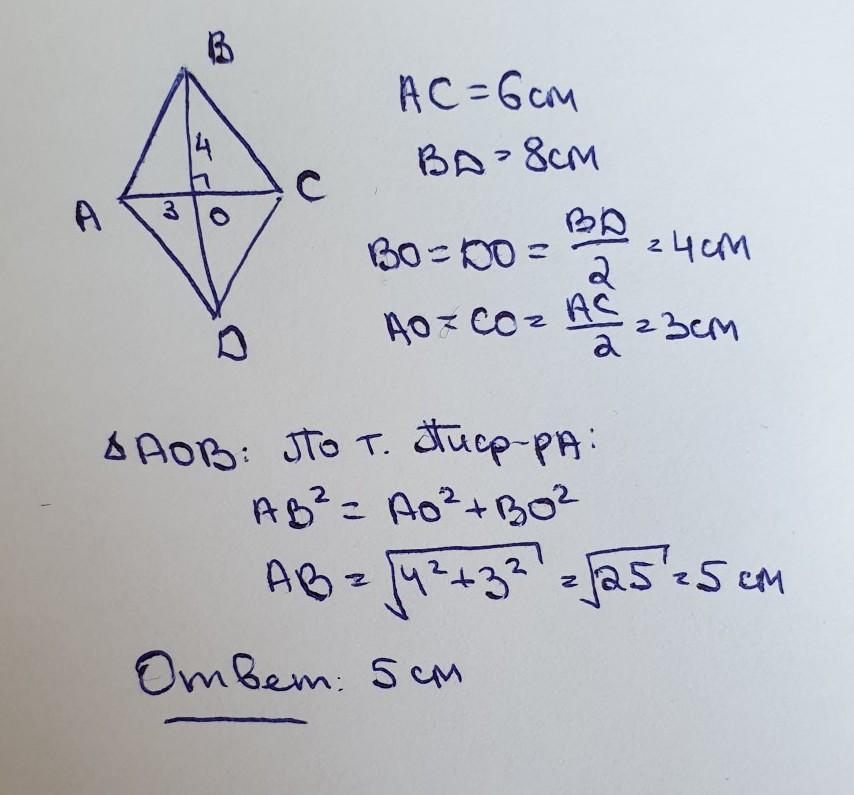 B
AC = 6см
4
BD = 8см
A
3
O
C
BO = DO = BD/2 = 4см
D
AO = CO = AC/2 = 3см
ΔAOB: По т. Пиф-рА:
AB² = AO² + BO²
AB = √4² + 3² = √25 = 5 см
Ответ: 5 см